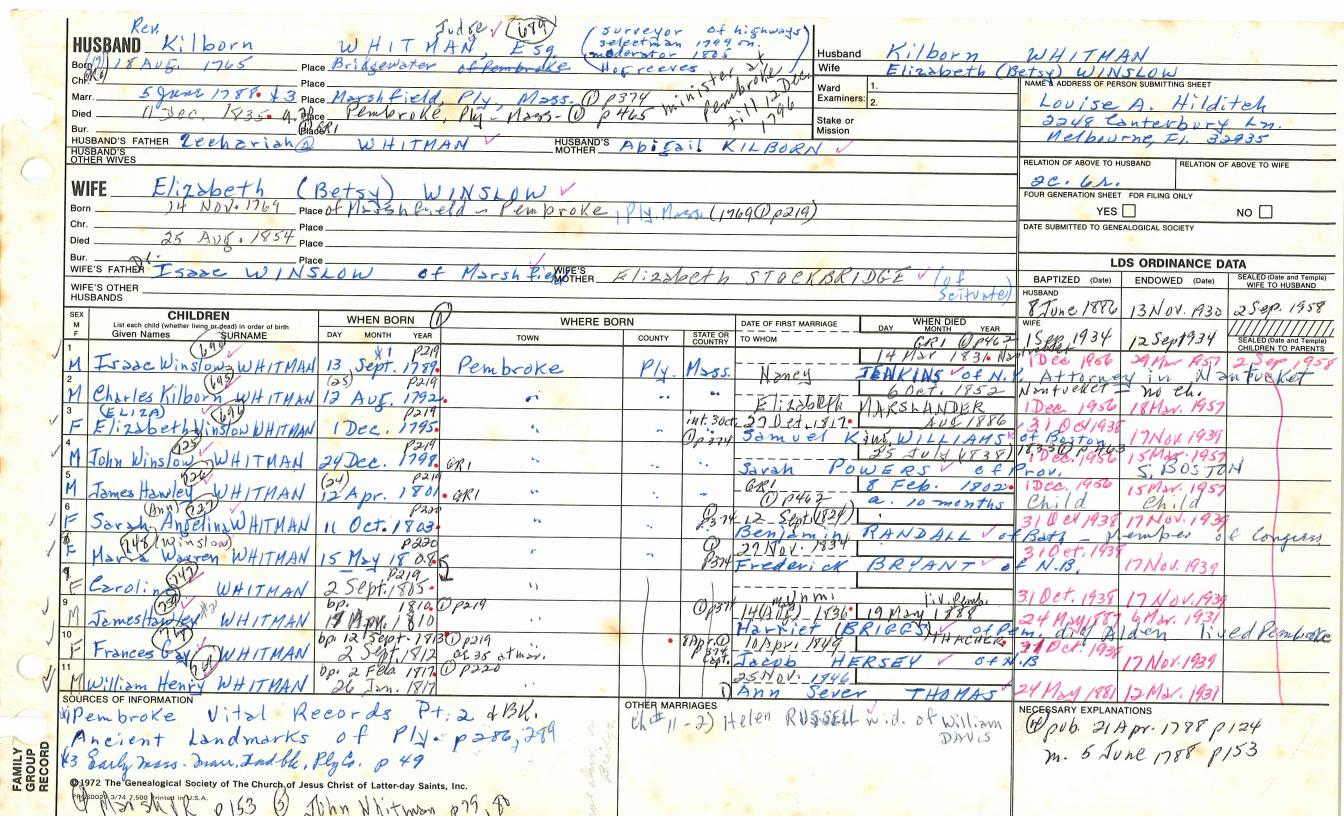 Rev. Judge 689
HUSBAND Kilborn WHITMAN, Esq (surveyor of highways
selectman 1799 on.
moderator 1805
Hogreeves
Born 18 Aug. 1765 Place Bridgewater of Pembroke
Chr.
Marr. 5 June 1788. #3 Place Marshfield, Ply, Mass. ① p374
Died 11 Dec. 1835. Place Pembroke, Ply- Mass- ① p465
minister at Pembroke till 12 Dec. 1796
Bur. Place GR1
HUSBAND'S FATHER Zechariah WHITMAN HUSBAND'S MOTHER Abigail KILBORN
HUSBAND'S OTHER WIVES
Husband Kilborn WHITMAN
Wife Elizabeth (Betsy) WINSLOW
Ward Examiners: 1.
2.
Stake or Mission
NAME & ADDRESS OF PERSON SUBMITTING SHEET
Louise A. Hilditch
2248 Canterbury Ln.
Melbourne, Fl. 32935
RELATION OF ABOVE TO HUSBAND RELATION OF ABOVE TO WIFE
FOUR GENERATION SHEET FOR FILING ONLY
YES NO
DATE SUBMITTED TO GENEALOGICAL SOCIETY
WIFE Elizabeth (Betsy) WINSLOW
Born 14 Nov. 1769 Place of Marshfield - Pembroke, Ply. Mass. (1769 ① p219)
Chr. Place
Died 25 Aug. 1854 Place
Bur. Place
WIFE'S FATHER Dr. Isaac WINSLOW of Marshfield WIFE'S MOTHER Elizabeth STOCKBRIDGE (of Scituate)
WIFE'S OTHER HUSBANDS
LDS ORDINANCE DATA
BAPTIZED (Date) ENDOWED (Date) SEALED (Date and Temple) WIFE TO HUSBAND
HUSBAND 8 June 1886 13 Nov. 1930 2 Sep. 1958
WIFE 1 Sep. 1934 12 Sep 1934
SEALED (Date and Temple) CHILDREN TO PARENTS
SEX M F CHILDREN List each child (whether living or dead) in order of birth Given Names SURNAME
WHEN BORN ① DAY MONTH YEAR
WHERE BORN TOWN COUNTY STATE OR COUNTRY
DATE OF FIRST MARRIAGE TO WHOM
WHEN DIED DAY MONTH YEAR
1 M Isaac Winslow WHITMAN 13 Sept. 1789. p219 Pembroke Ply. Mass. GR1 ① p462 14 Mar 1831.
Nancy JENKINS of N. Attorney in Nantucket
1 Dec 1956 29 Mar 1957 2 Sep 1958
2 M Charles Kilborn 695 WHITMAN (25) 12 Aug. 1792. p219 " " " 6 Oct. 1852 Nantucket - no ch.
Elizabeth MARSLANDER
1 Dec. 1956 18 Mar. 1957
3 F (ELIZA) Elizabeth Winslow 696 WHITMAN 1 Dec. 1795. p219 " " " int. 3 Oct. ① p374 27 Dec. 1817. Aug 1886
Samuel King WILLIAMS of Boston
31 Oct 1938 17 Nov. 1939
4 M John Winslow 725 WHITMAN 24 Dec. 1798. p219 GR1 " " " 25 July (1838)
Sarah POWERS of Prov. S. BOSTON
1 Dec. 1956 15 Mar. 1957
5 M James Hawley WHITMAN (24) 12 Apr. 1801. p219 GR1 " " " GR1 ① p462 8 Feb. 1802.
a. 10 months
1 Dec. 1956 15 Mar. 1957
Child Child
6 F Sarah (Ann) Angelina 727 WHITMAN 11 Oct. 1803. p220 " " " p374 12 Sept. (1824)
Benjamin RANDALL of Bath - Member of Congress
31 Oct 1938 17 Nov. 1939
F Maria Warren (Winslow) 748 WHITMAN 15 May 1808. p220 " " " ① p374 27 Nov. 1834
Frederick BRYANT of N.B.
31 Oct. 1938 17 Nov. 1939
F Caroline 747 WHITMAN 2 Sept. 1805. p219 "
31 Oct. 1938 17 Nov. 1939
9 M James Hawley WHITMAN bp. 1810. ① p219 19 Apr. 1810 " ① p374 1836. 19 May 1888 liv. Pemb.
Harriet (BRIGGS) THACHER of Pem., died Alden lived Pembroke
24 May 1881 6 Mar. 1931
10 F Frances Gay WHITMAN bp. 12 Sept. 1813 ① p219 2 Sept. 1812 or 35 at mar. " 8 Apr. ① p374 10 Apr. 1849
Jacob HERSEY of N.B
31 Oct. 1938 17 Nov. 1939
11 M William Henry WHITMAN bp. 2 Feb. 1817. ① p220 26 Jan. 1817 " 25 Nov. 1946
① Ann Sever THOMAS
24 May 1881 12 Mar. 1931
SOURCES OF INFORMATION
#1 Pembroke Vital Records Pt: 2 & BK.
Ancient Landmarks of Ply. p286, 289
#3 Early Mass. Marr. Ind bk, Ply Co. p 49
OTHER MARRIAGES
ch # 11 - 2) Helen RUSSELL wid. of William DAVIS
NECESSARY EXPLANATIONS
④ pub. 21 Apr. 1788 p124
m. 5 June 1788 p153
©1972 The Genealogical Society of The Church of Jesus Christ of Latter-day Saints, Inc.
3/74 7,500 Printed in U.S.A.
④ Marsh VR p153 ⑤ John Whitman p79, 80
FAMILY GROUP RECORD